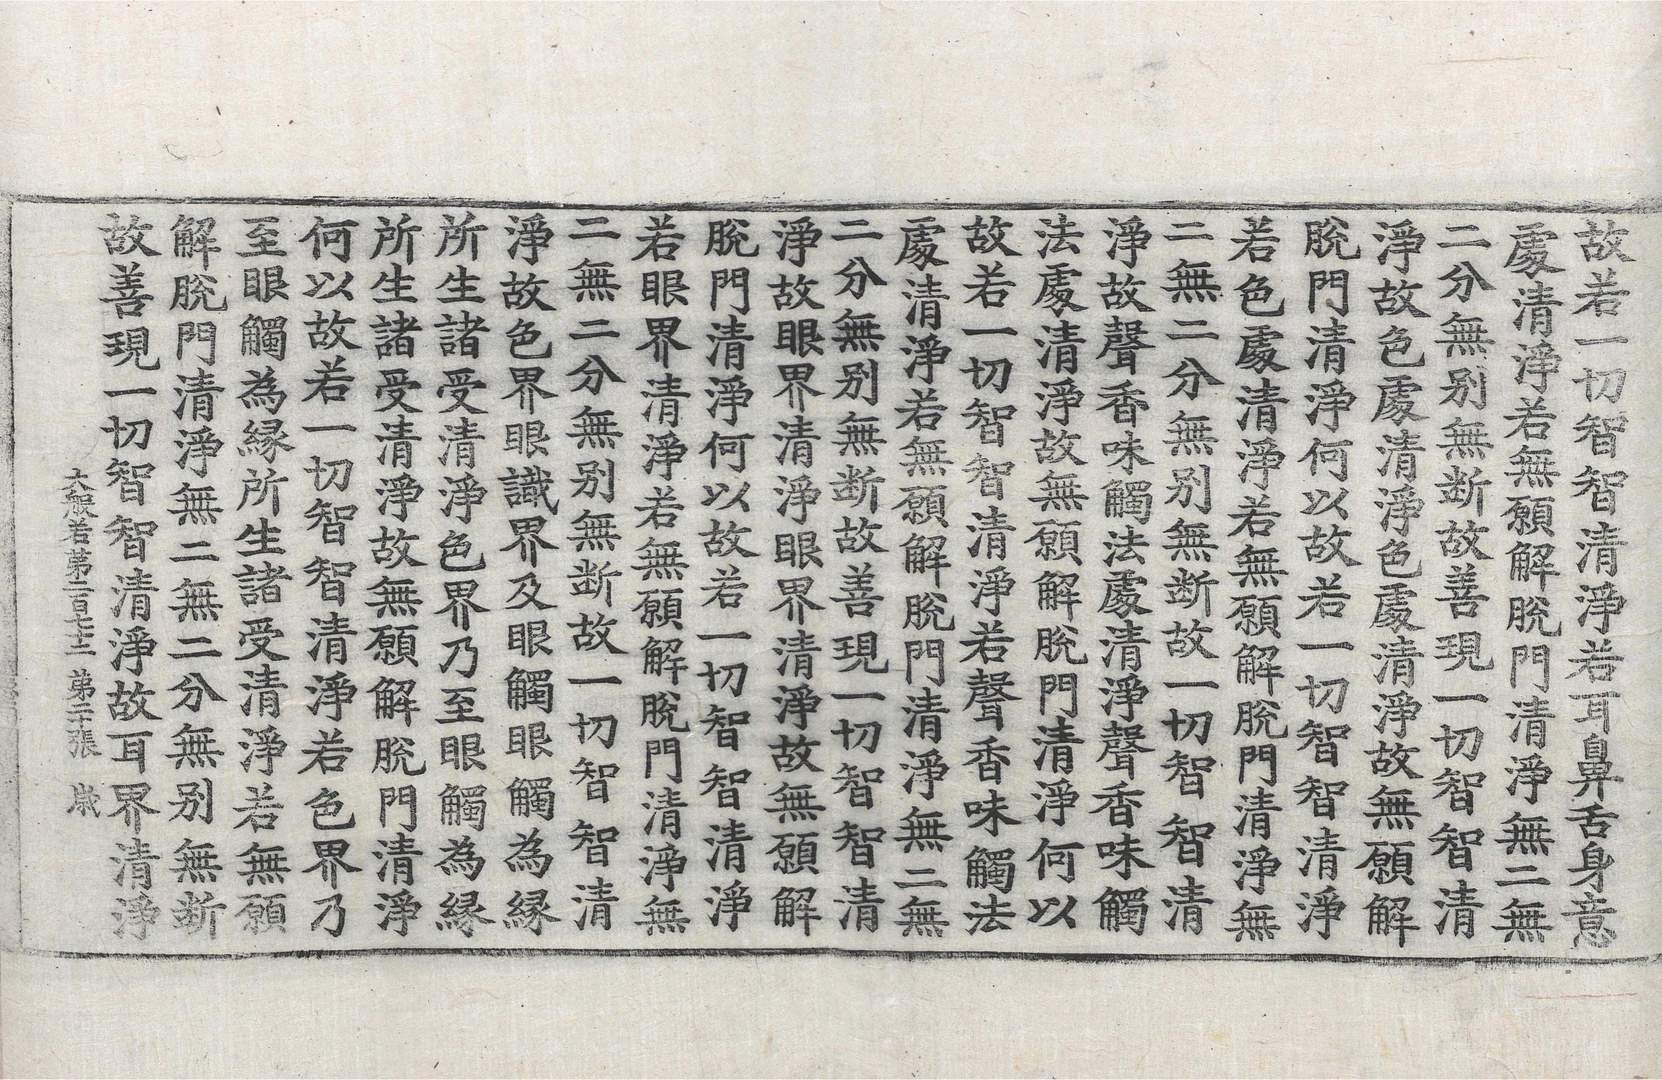 故若一切智智清淨若耳鼻舌身意
處清淨若無願解脫門清淨無二無
二分無别無断故善現一切智智清
淨故色處清淨色處清淨故無願解
脫門清淨何以故若一切智智清淨
若色處清淨若無願解脫門清淨無
二無二分無别無断故一切智智清
淨故聲香味觸法處清淨聲香味觸
法處清淨故無願解脫門清淨何以
故若一切智智清淨若聲香味觸法
處清淨若無願解脫門清淨無二無
二分無别無断故善現一切智智清
淨故眼界清淨眼界清淨故無願解
脫門清淨何以故若一切智智清淨
若眼界清淨若無願解脫門清淨無
二無二分無别無断故一切智智清
淨故色界眼識界及眼觸眼觸為縁
所生諸受清淨色界乃至眼觸為縁
所生諸受清淨故無願解脫門清淨
何以故若一切智智清淨若色界乃
至眼觸為縁所生諸受清淨若無願
解脫門清淨無二無二分無别無断
故善現一切智智清淨故耳界清淨
大般若第二百七十二 第二十張 歲